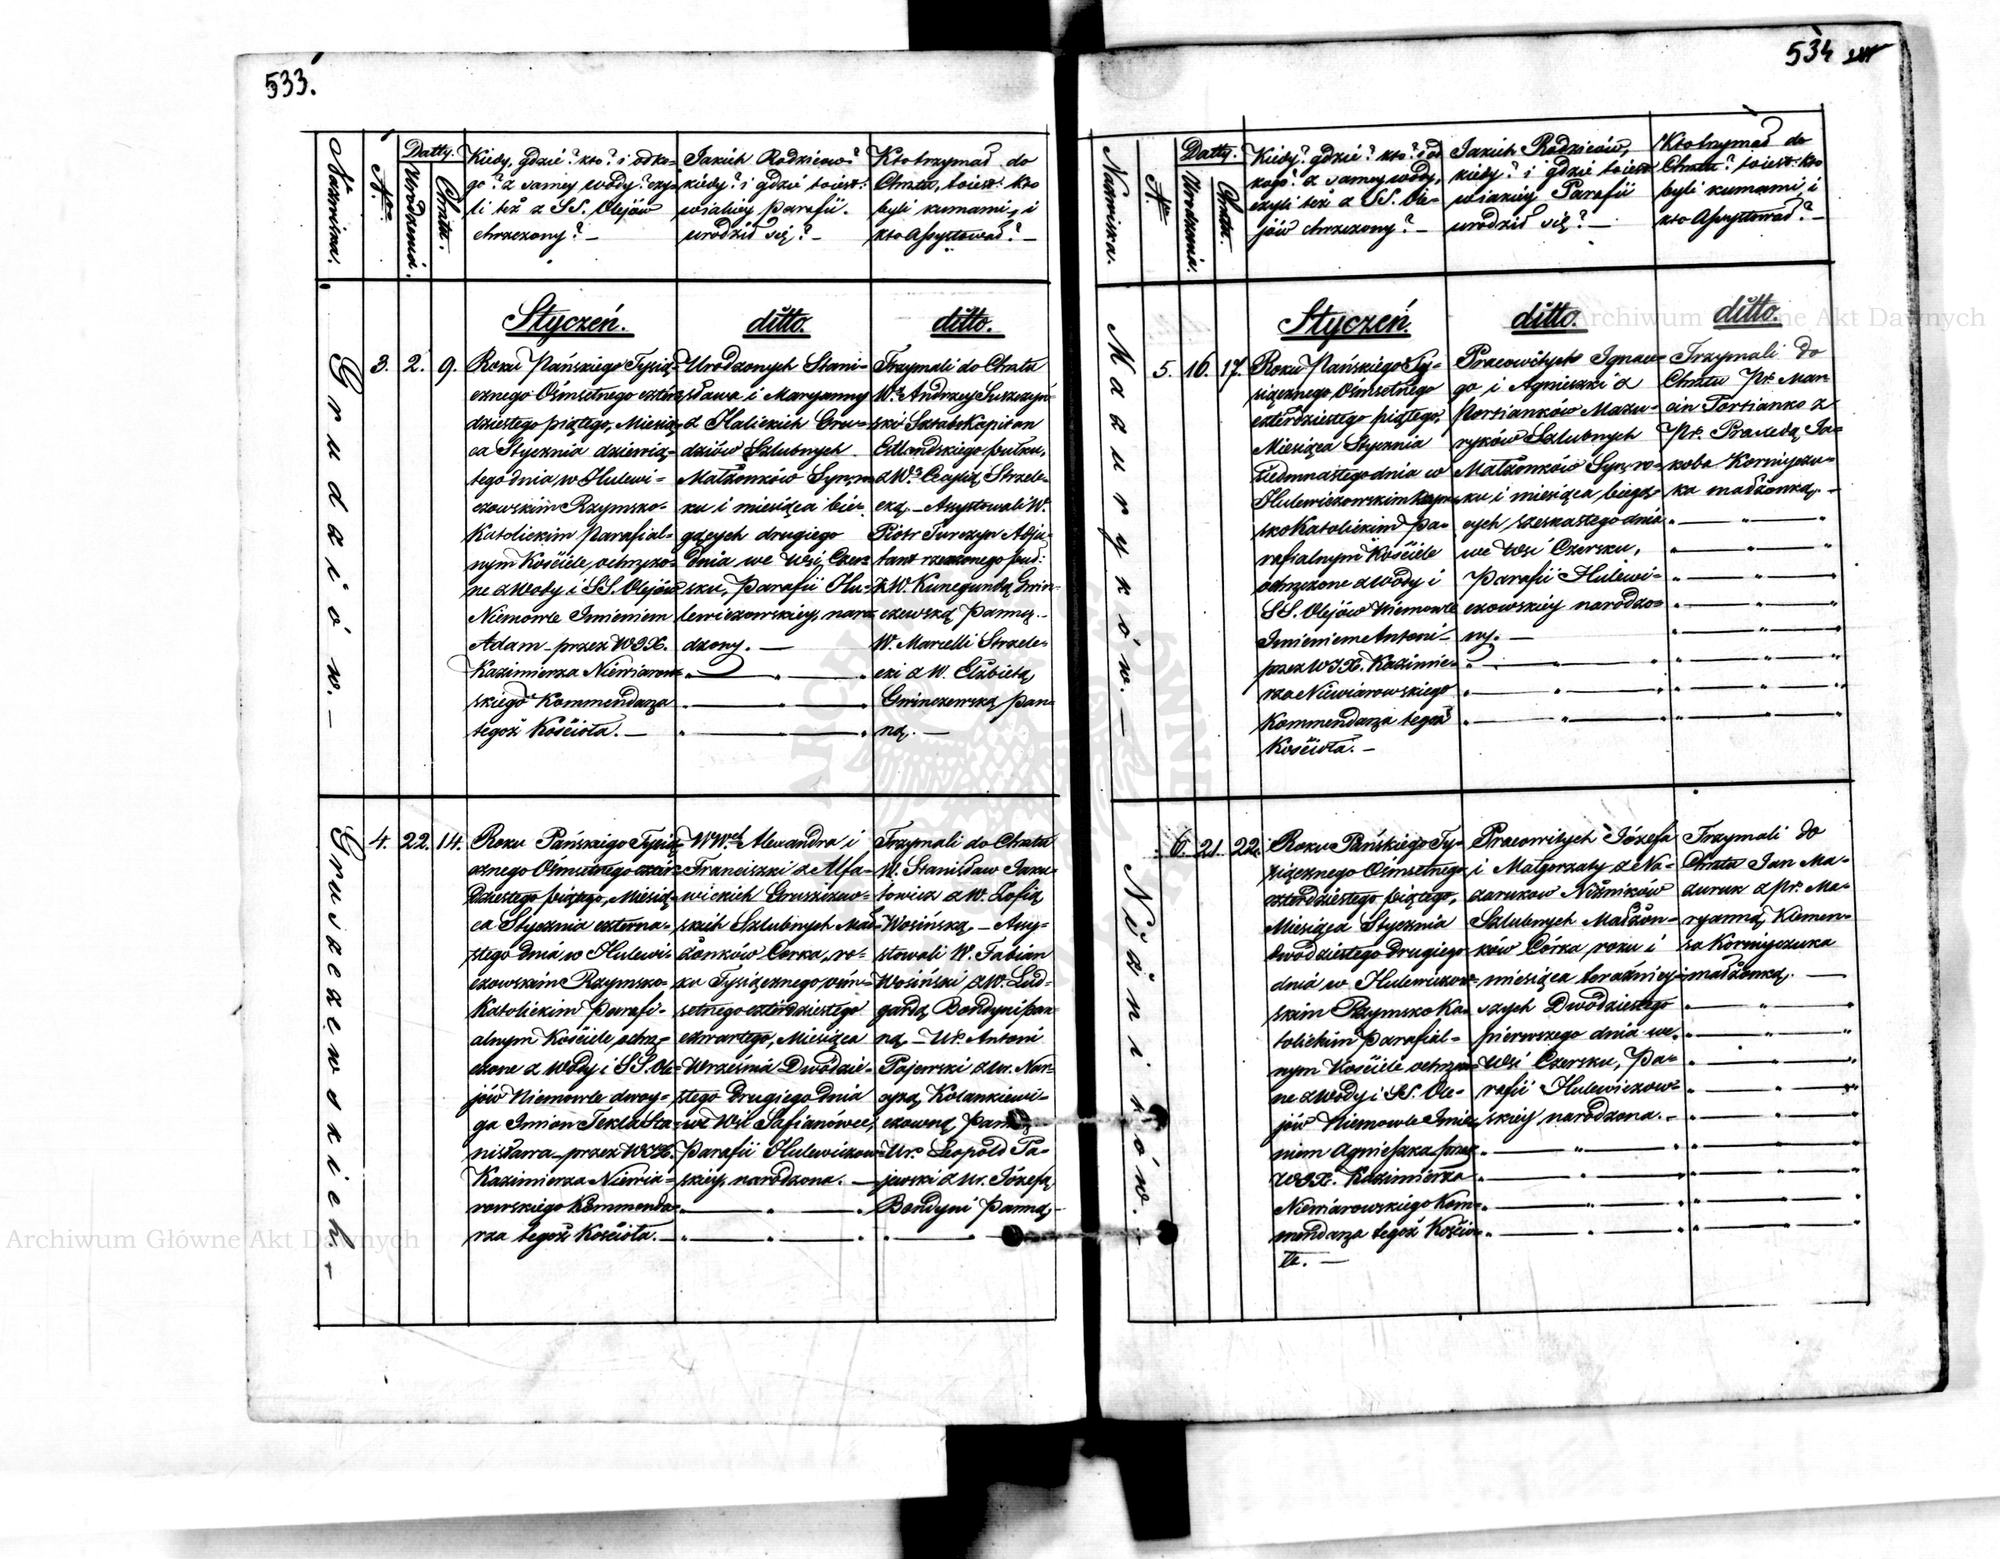 533.
Nazwiska.
Nro
Datty.
Urodzenia.
Chrztu.
Kiedy, gdzie? kto? i od ko-
go? z samey wody? czy-
li też z SS. Olejów
chrzczony? —
Jakich Rodziców?
kiedy? i gdzie to iest:
w iakiey parafii.
urodził się? —
Kto trzymał do
Chrztu, to iest: kto
byli kumami, i
kto Assystował? —
Styczeń.
ditto.
ditto.
Grudziów. —
3.
2.
9.
Roku Pańskiego Tysią-
cznego Ośmsetnego czter-
dziestego piątego, Miesią-
ca Stycznia dziewią-
tego dnia, w Hulewi-
czowskim Rzymsko-
Katolickim Parafial-
nym Kościele ochrzczo-
ne z Wody i SS. Olejów
Niemowle Imieniem
Adam przez WJX.
Kazimierza Niewiarow-
skiego Kommendarza
tegoż Kościoła. —
Urodzonych Stani-
sława i Maryanny
z Halickich Gru-
dziów Szlubnych
Małżonków Syn, ro-
ku i miesiąca bie-
gących drugiego
dnia we Wsi Czer-
sku, Parafii Hu-
lewiczowskiey naro-
dzony. —
Trzymali do Chrztu
W. Andrzey
Sztabs Kapitan
pułku,
z W. Strzele-
cką. — Assystowali W.
Piotr Turczyn Adju-
tant rzeczonego puł:
z W. Kunegundą
Panną. —
W. Marcelli Strzele-
cki z W. Elżbietą
Pan-
ną. —
Gruszczewskich. —
4.
22.
14.
Roku Pańskiego Tysią-
cznego Ośmsetnego czter-
dziestego piątego, Miesią-
ca Stycznia czterna-
stego dnia w Hulewi-
czowskim Rzymsko-
Katolickim Parafi-
alnym Kościele ochrz-
czone z Wody i SS. Ole-
jów Niemowle dwoy-
ga Imion Tekla Sta-
nisława przez WJX.
Kazimierza Niewia-
rowskiego Kommenda-
rza tegoż Kościoła. —
WW. Alexandra i
Franciszki z Alfa-
wickich
skich Szlubnych Mał-
żonków Corka, ro-
ku Tysiącznego, ośm-
setnego czterdziestego
czwartego, Miesiąca
Września Dwódzie-
stego drugiego dnia
we Wsi Safianówce,
Parafii Hulewiczow-
skiey, narodzona. —
Trzymali do Chrztu
W. Stanisław Jaku-
towicz z W. Zofią
Wosińską — Assy-
stowali W. Fabian
Wosiński z W. Lud-
gardą Bandyni pan-
ną — Ur. Antoni
Pajewski z Ur. Nar-
cyzą Kolankiewi-
czowną Panną
Ur. Leopold Pa-
jewski z Ur. Józefą
Bandyni Panną. —
534
Nazwiska.
Nro
Datty.
Urodzenia.
Chrztu.
Kiedy? gdzie? kto? i od
kogo? z samey wody,
czyli też z SS. Ole-
jów chrzczony? —
Jakich Rodziców,
kiedy? i gdzie to iest
w iakiey Parafii
urodził się? —
Kto trzymał do
Chrztu? to iest: kto
byli kumami, i
kto Assystował? —
Styczeń.
ditto.
ditto.
Mazuryków. —
5.
16.
17.
Roku Pańskiego Ty-
siącznego Ośmsetnego
czterdziestego piątego,
Miesiąca Stycznia
siedmnastego dnia w
Hulewiczowskim Rzym-
sko Katolickim Pa-
rafialnym Kościele
ochrzczone z Wody i
SS. Olejów Niemowle
Imieniem Antoni —
przez WJX. Kazimie-
rza Niewiarowskiego
Kommendarza tegoż
Kościoła. —
Pracowitych Ignace-
go i Agnieszki z
Portianków Mazu-
ryków Szlubnych
Małżonków Syn, ro-
ku i miesiąca biegą-
cych szesnastego dnia
we Wsi Czersku,
Parafii Hulewi-
czowskiey narodzo-
ny. —
Trzymali do
Chrztu Pr. Mar-
cin Portianko z
Pr. Praxedą Ja-
koba Korniyczu-
ka małżonką. —
Niżników. —
6.
21.
22.
Roku Pańskiego Ty-
siącznego Ośmsetnego
czterdziestego piątego,
Miesiąca Stycznia
dwódziestego drugiego
dnia w Hulewiczow-
skim Rzymsko Ka-
tolickim Parafial-
nym Kościele ochrzczo-
ne z Wody i SS. Ole-
jów Niemowle Imie-
niem Agnieszka przez
WJX. Kazimierza
Niewiarowskiego Kom-
mendarza tegoż Kościo-
ła. —
Pracowitych Józefa
i Małgorzaty z Na-
zaruków Niżników
Szlubnych Małżon-
ków Corka roku i
miesiąca teraźniey-
szych Dwódziestego
pierwszego dnia we
Wsi Czersku, Pa-
rafii Hulewiczow-
skiey narodzona. —
Trzymali do
Chrztu Jan Ma-
zuruk z Pr. Ma-
ryanną Klemen-
sa Korniyczuka
małżonką. —
Archiwum Główne Akt Dawnych
Archiwum Główne Akt Dawnych